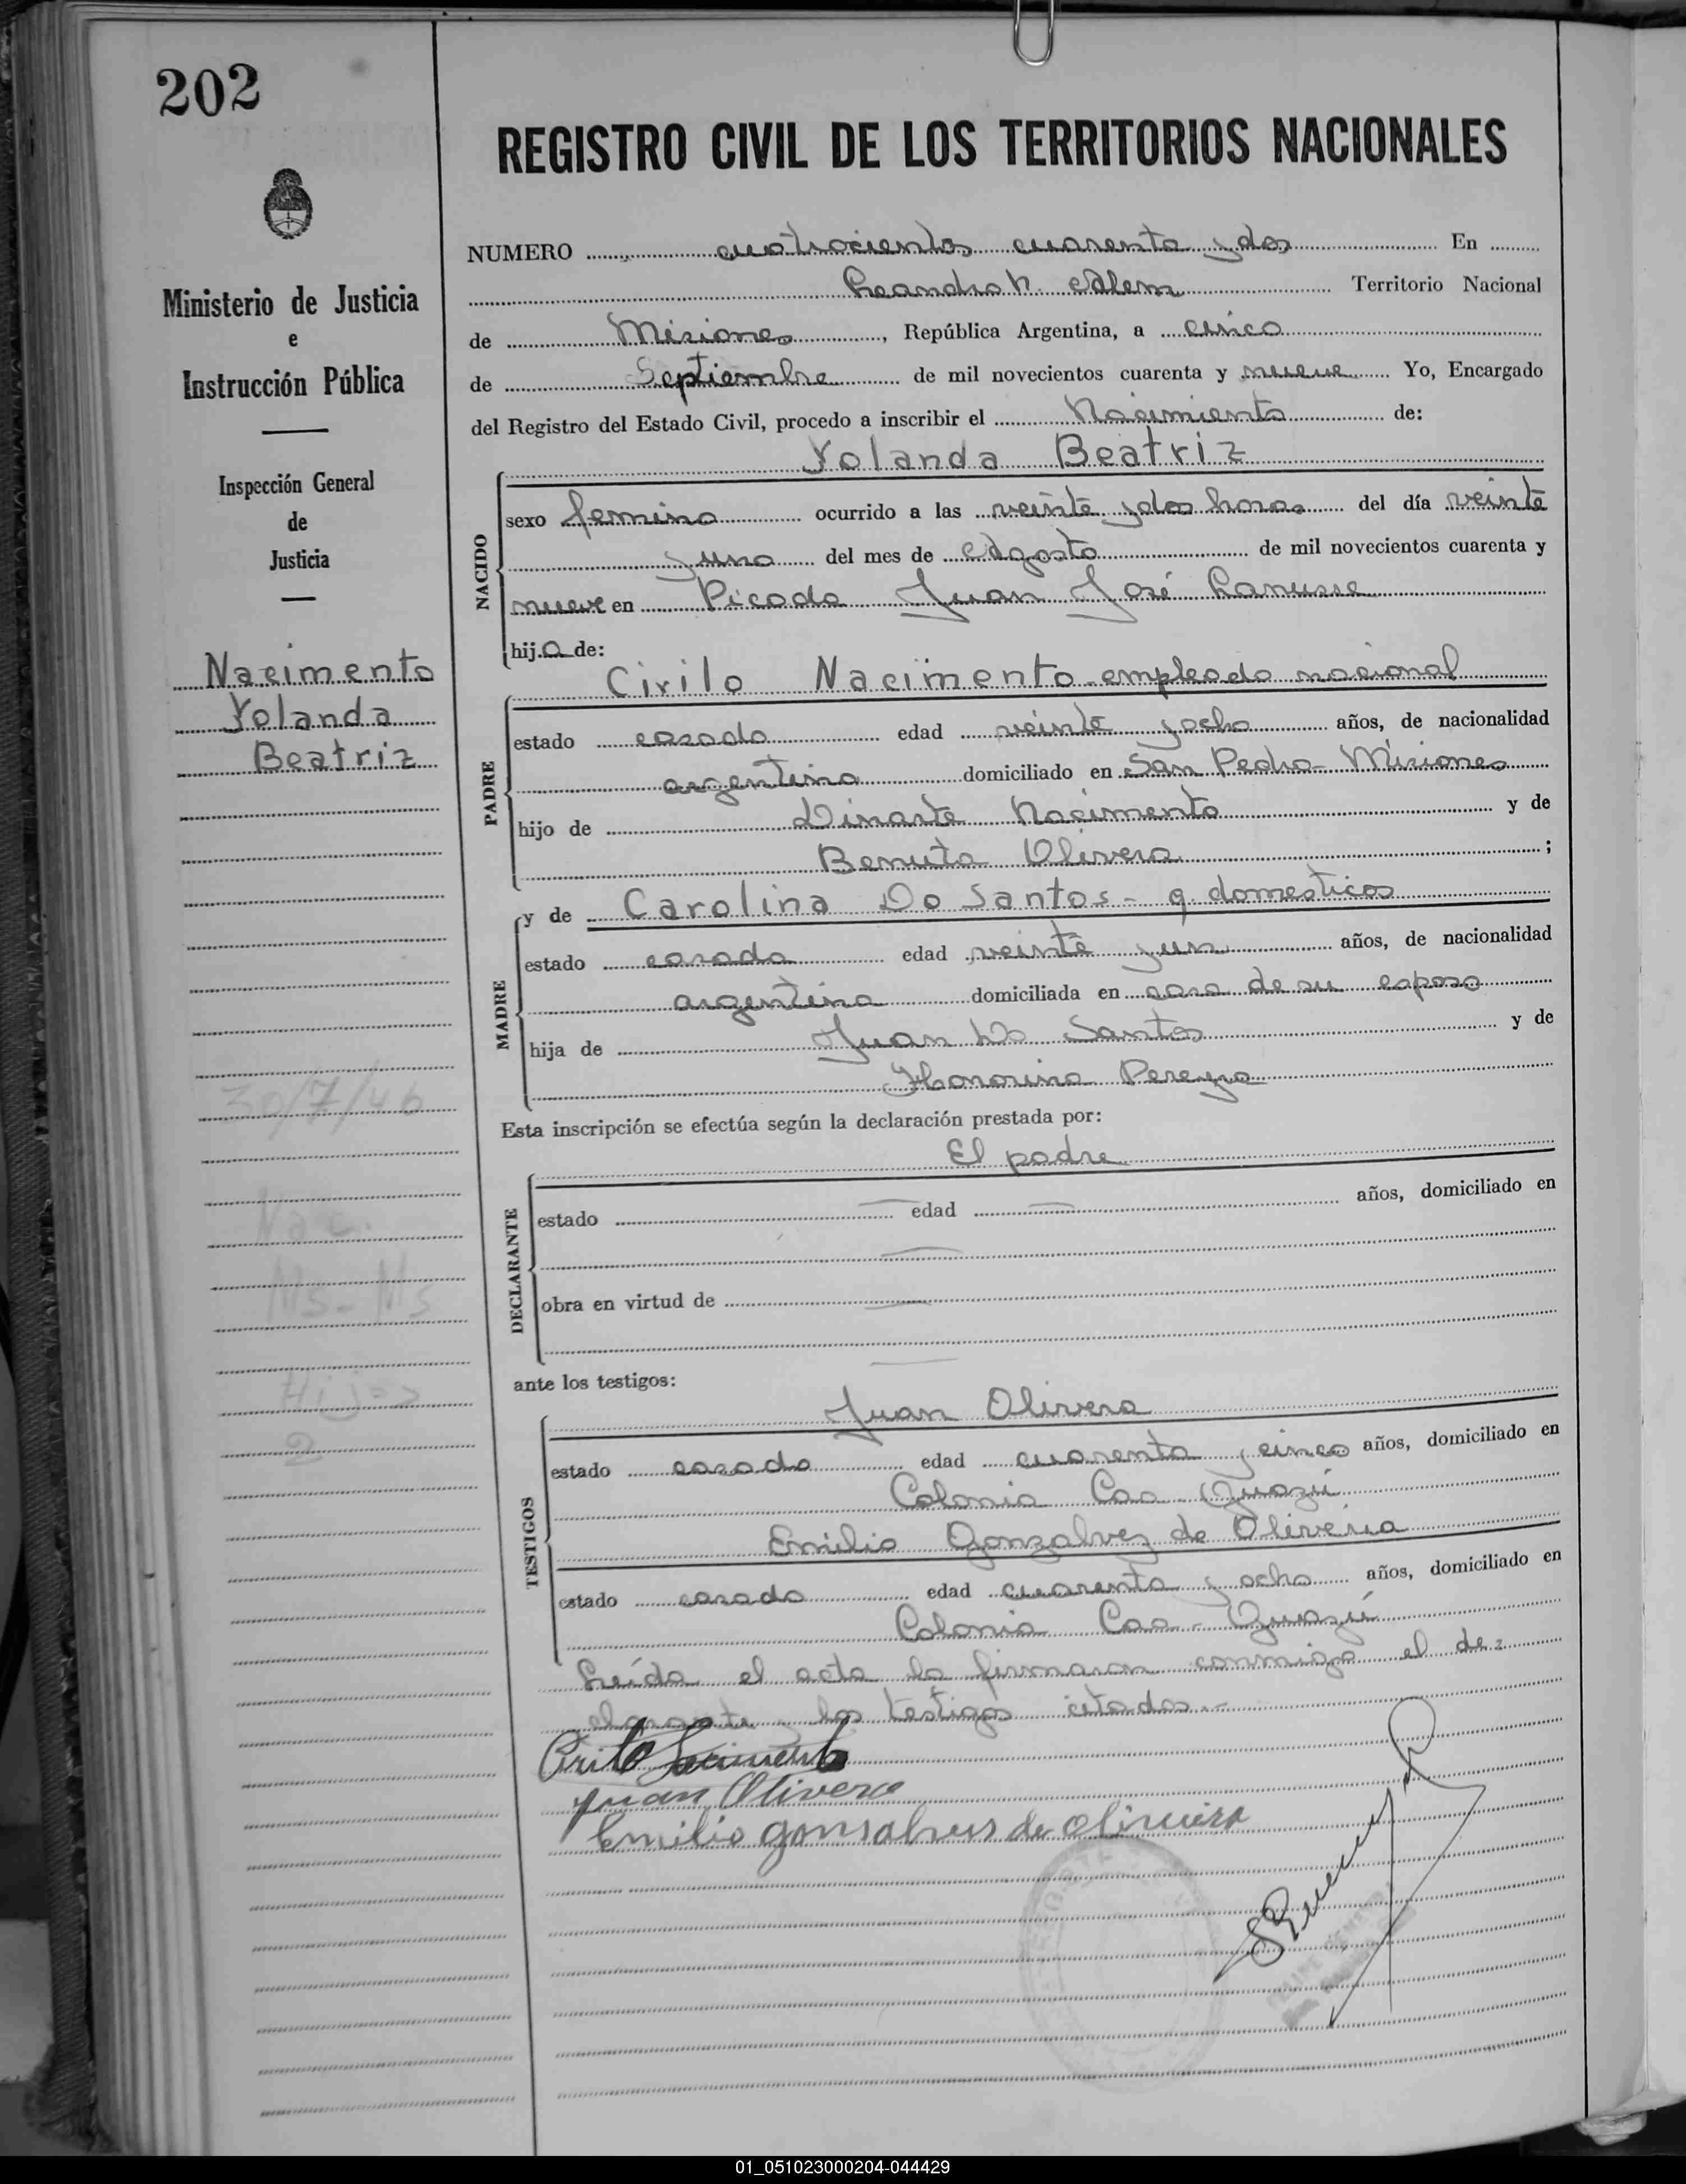 202
REGISTRO CIVIL DE LOS TERRITORIOS NACIONALES
Ministerio de Justicia
e
Instrucción Pública
Inspección General
de
Justicia
Nacimento
Yolanda
Beatriz
30/7/46
Nac.
Ms-Ms
Hij=>
2
NUMERO cuatrocientos cuarenta y dos En
Leandro N. Alem Territorio Nacional
de Misiones, República Argentina, a cinco
de Septiembre de mil novecientos cuarenta y nueve Yo, Encargado
del Registro del Estado Civil, procedo a inscribir el Nacimiento de:
Yolanda Beatriz
NACIDO
sexo femino ocurrido a las veinte y dos horas del día veinte
y uno del mes de Agosto de mil novecientos cuarenta y
nueve en Picada Juan José Lanusse
hija de:
Cirilo Nacimento - empleado nacional
PADRE
estado casado edad veinte y ocho años, de nacionalidad
argentina domiciliado en San Pedro - Misiones
hijo de Dinarte Nacimento y de
Benuta Olivera ;
y de Carolina Do Santos - q. domesticos
MADRE
estado casada edad veinte y un años, de nacionalidad
argentina domiciliada en casa de su esposo
hija de Juan Do Santos y de
Honorina Pereyra
Esta inscripción se efectúa según la declaración prestada por:
El padre
DECLARANTE
estado — edad — años, domiciliado en
—
obra en virtud de —
—
ante los testigos:
Juan Olivera
TESTIGOS
estado casado edad cuarenta y cinco años, domiciliado en
Colonia Caa Guazú
Emilio Gonzalvez de Oliveria
estado casado edad cuarenta y ocho años, domiciliado en
Colonia Caa - Guazú
Leída el acta la firmaron conmigo el de=
clarante y los testigos citados.-
Cirilo Nacimento
Juan Olivera
Emilio gonsalves de oliveira
01_051023000204-044429